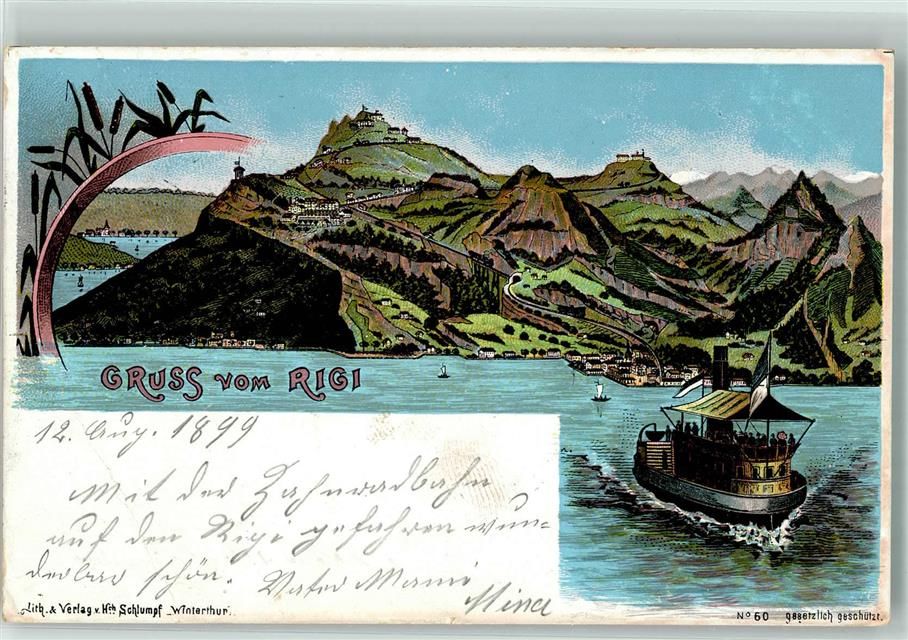 GRUSS VOM RIGI
12. Aug. 1899
Mit der Zahnradbahn
auf den Rigi gefahren wun-
derbar schön. Vater Mami
Mina
Lith. & Verlag v. Hch Schlumpf Winterthur.
No 60 gesetzlich geschützt.